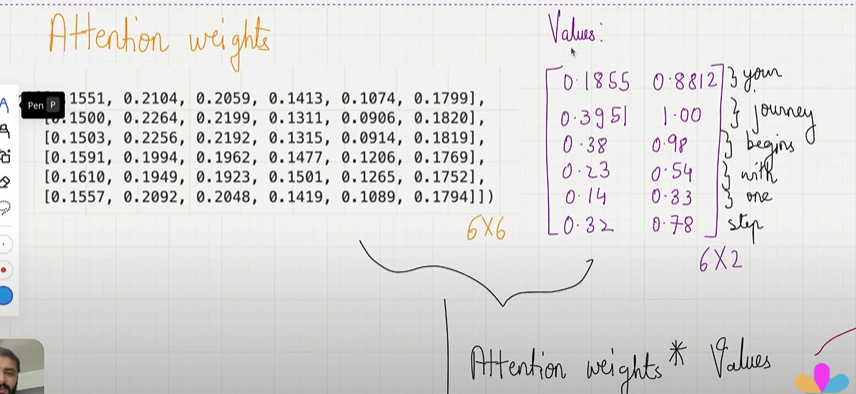 Attention weights
Values:
Pen P
.1551, 0.2104, 0.2059, 0.1413, 0.1074, 0.1799],
0.1500, 0.2264, 0.2199, 0.1311, 0.0906, 0.1820],
[0.1503, 0.2256, 0.2192, 0.1315, 0.0914, 0.1819],
[0.1591, 0.1994, 0.1962, 0.1477, 0.1206, 0.1769],
[0.1610, 0.1949, 0.1923, 0.1501, 0.1265, 0.1752],
[0.1557, 0.2092, 0.2048, 0.1419, 0.1089, 0.1794]])
6X6
0.1855 0.8812 } your
0.3951 1.00 } journey
0.38 0.98 } begins
0.23 0.54 } with
0.14 0.33 } one
0.32 0.78 step
6X2
Attention weights * Values